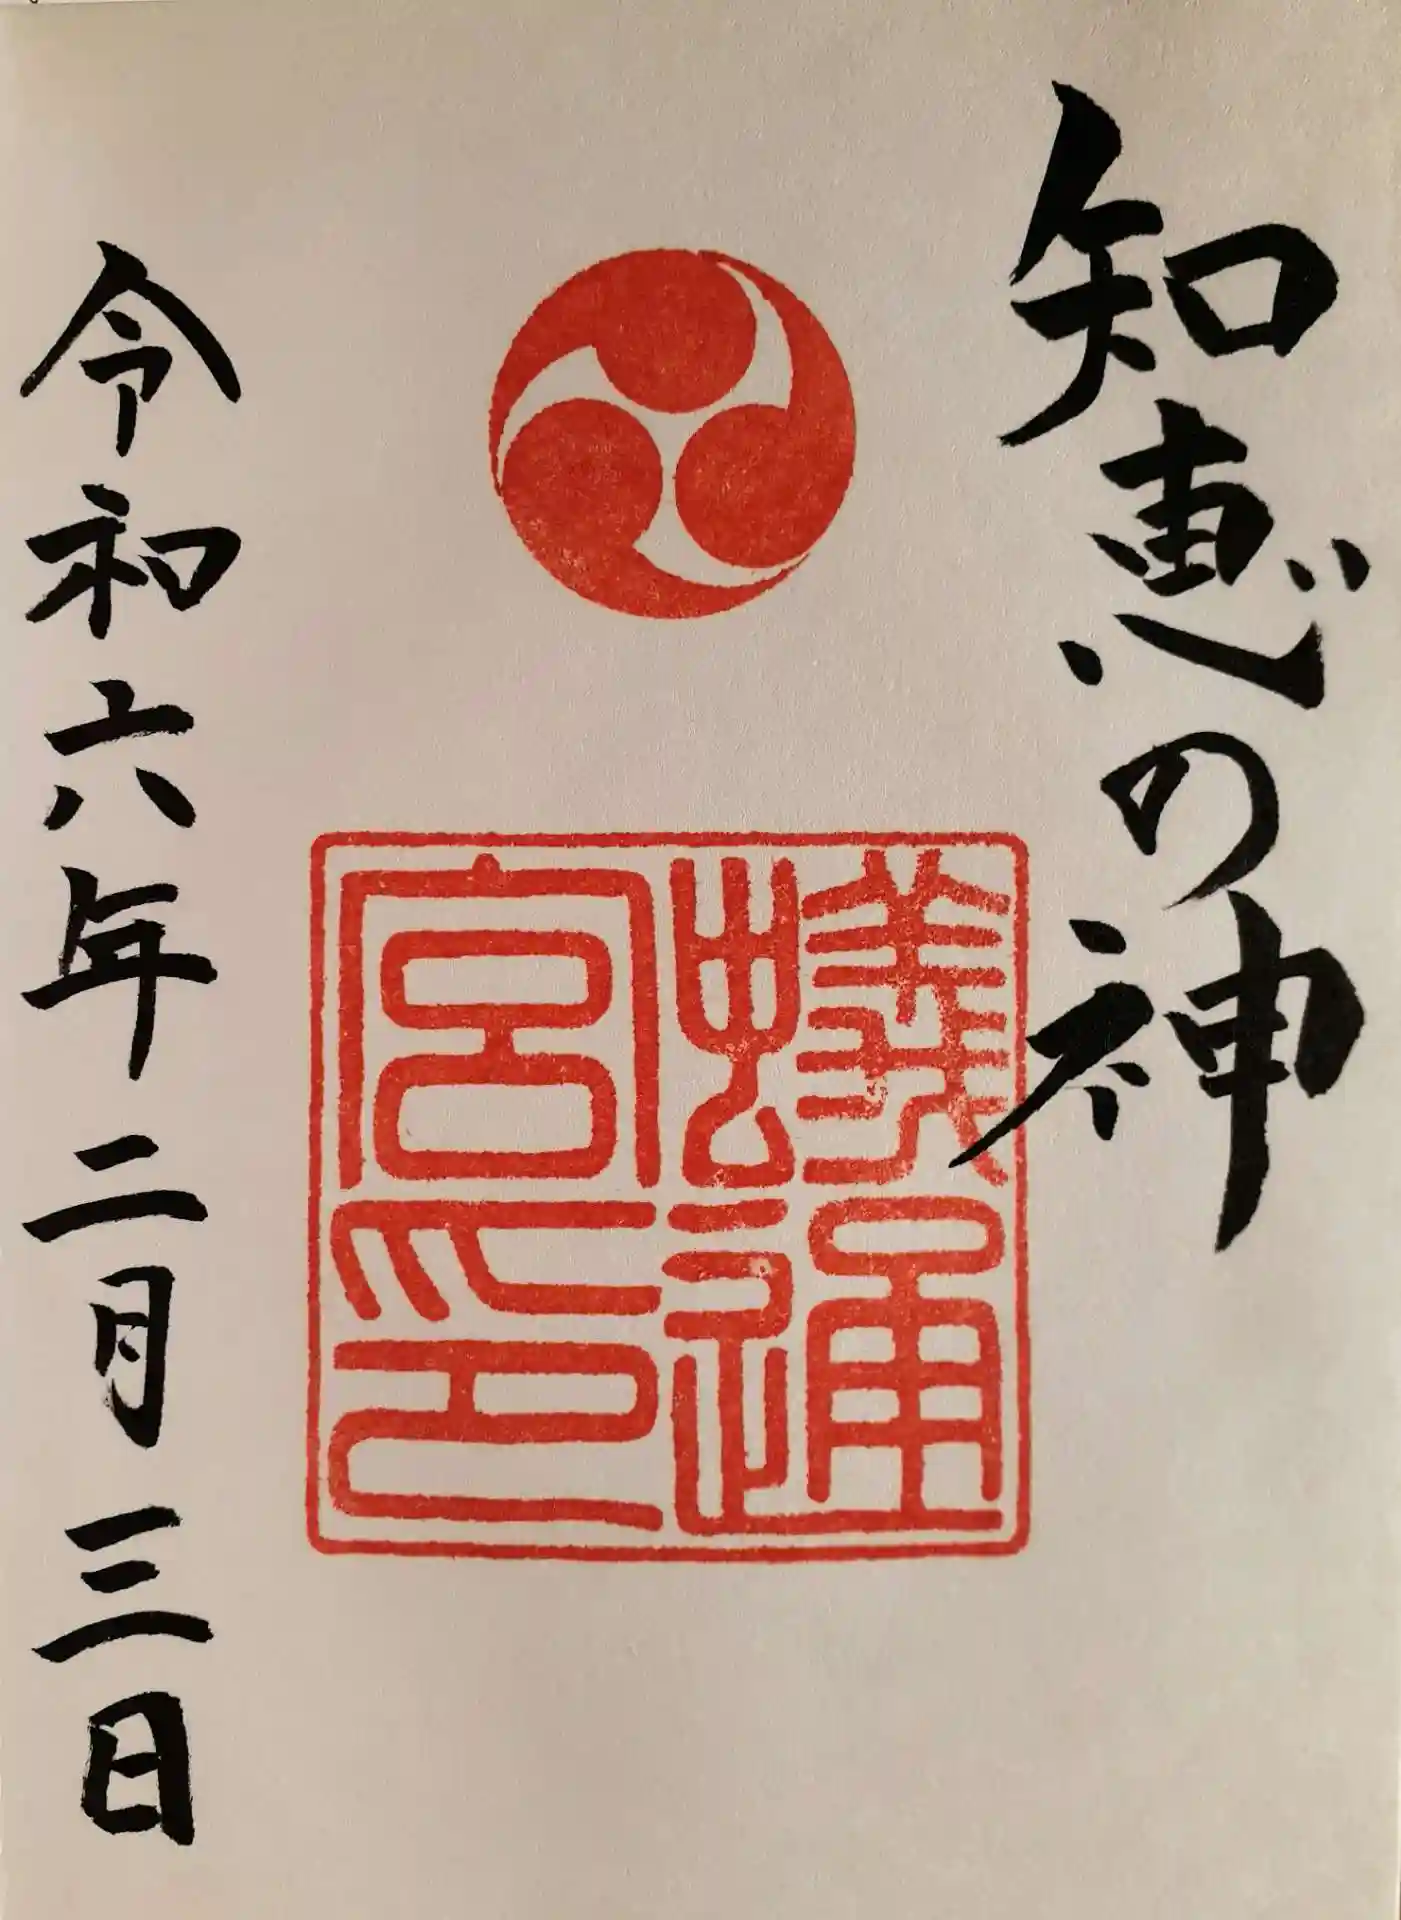 知恵の神
蟻通
宮印
令和六年二月三日